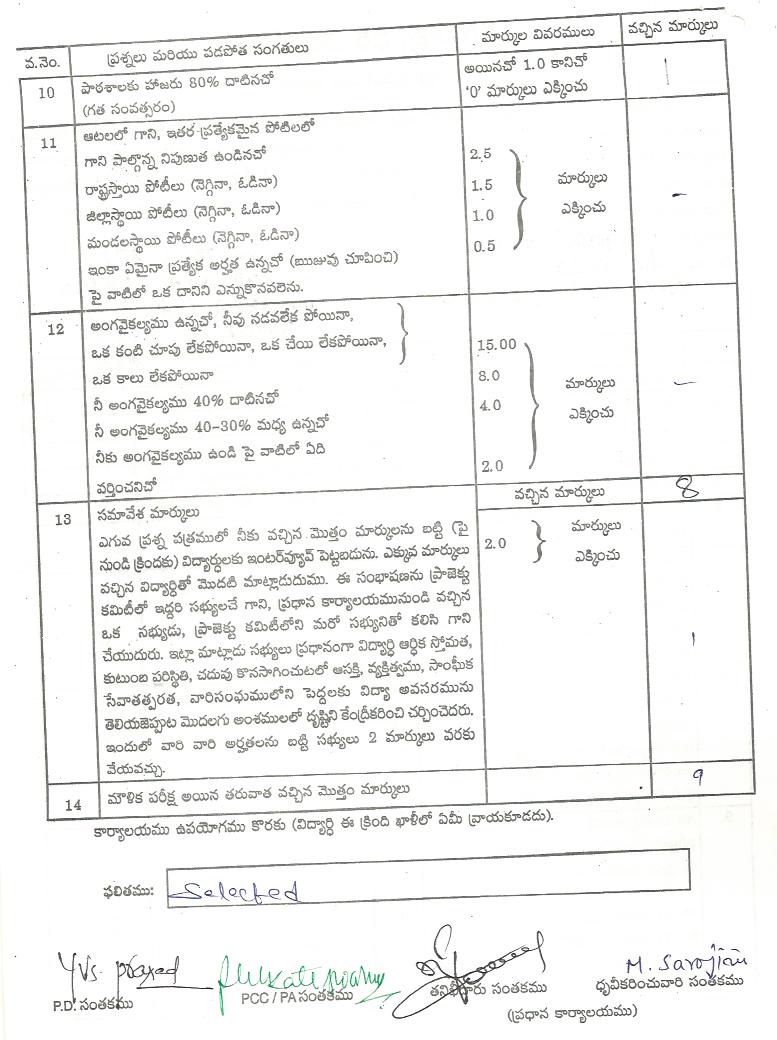 వ.నెం. ప్రశ్నలు మరియు పడపోత సంగతులు మార్కుల వివరములు వచ్చిన మార్కులు
10 పాఠశాలకు హాజరు 80% దాటినచో అయినచో 1.0 కానిచో 1
(గత సంవత్సరం) ‘0’ మార్కులు ఎక్కించు
11 ఆటలలో గాని, ఇతర ప్రత్యేకమైన పోటిలలో
గాని పాల్గొన్న నిపుణుత ఉండినచో 2.5
రాష్ట్రస్తాయి పోటీలు (నెగ్గినా, ఓడినా) 1.5 మార్కులు –
జిల్లాస్థాయి పోటీలు (నెగ్గినా, ఓడినా) 1.0 ఎక్కించు
మండలస్థాయి పోటీలు (నెగ్గినా, ఓడినా) 0.5
ఇంకా ఏమైనా ప్రత్యేక అర్హత ఉన్నచో (ఋజువు చూపించి)
పై వాటిలో ఒక దానిని ఎన్నుకొనవలెను.
12 అంగవైకల్యము ఉన్నచో, నీవు నడవలేక పోయినా,
ఒక కంటి చూపు లేకపోయినా, ఒక చేయి లేకపోయినా, 15.00
ఒక కాలు లేకపోయినా 8.0 మార్కులు –
నీ అంగవైకల్యము 40% దాటినచో 4.0 ఎక్కించు
నీ అంగవైకల్యము 40-30% మధ్య ఉన్నచో
నీకు అంగవైకల్యము ఉండి పై వాటిలో ఏది 2.0
వర్తించనిచో
వచ్చిన మార్కులు 8
13 సమావేశ మార్కులు
ఎగువ ప్రశ్న పత్రములో నీకు వచ్చిన మొత్తం మార్కులను బట్టి (పై 2.0 మార్కులు
నుండి క్రిందకు) విద్యార్ధులకు ఇంటర్‌వ్యూవ్ పెట్టబడును. ఎక్కువ మార్కులు ఎక్కించు
వచ్చిన విద్యార్థితో మొదటి మాట్లాడుదుము. ఈ సంభాషణను ప్రాజెక్టు
కమిటీలో ఇద్దరి సభ్యులచే గాని, ప్రధాన కార్యాలయమునుండి వచ్చిన
ఒక సభ్యుడు, ప్రాజెక్టు కమిటీలోని మరో సభ్యునితో కలిసి గాని
చేయుదురు. ఇట్లా మాట్లాడు సభ్యులు ప్రధానంగా విద్యార్ధి ఆర్ధిక స్తోమత, 1
కుటుంబ పరిస్థితి, చదువు కొనసాగించుటలో ఆసక్తి, వ్యక్తిత్వము, సాంఘీక
సేవాతత్పరత, వారిసంఘములోని పెద్దలకు విద్యా అవసరమును
తెలియజెప్పుట మొదలగు అంశములలో దృష్టిని కేంద్రీకరించి చర్చించెదరు.
ఇందులో వారి వారి అర్హతలను బట్టి సభ్యులు 2 మార్కులు వరకు
వేయవచ్చు.
14 మౌళిక పరీక్ష అయిన తరువాత వచ్చిన మొత్తం మార్కులు 9
కార్యాలయము ఉపయోగము కొరకు (విద్యార్ధి ఈ క్రింది ఖాళీలో ఏమీ వ్రాయకూడదు).
ఫలితము: Selected
YVS. prasad M. Sarojini
P.D. సంతకము PCC / PA సంతకము తనిఖీదారు సంతకము ధృవీకరించువారి సంతకము
(ప్రధాన కార్యాలయము)